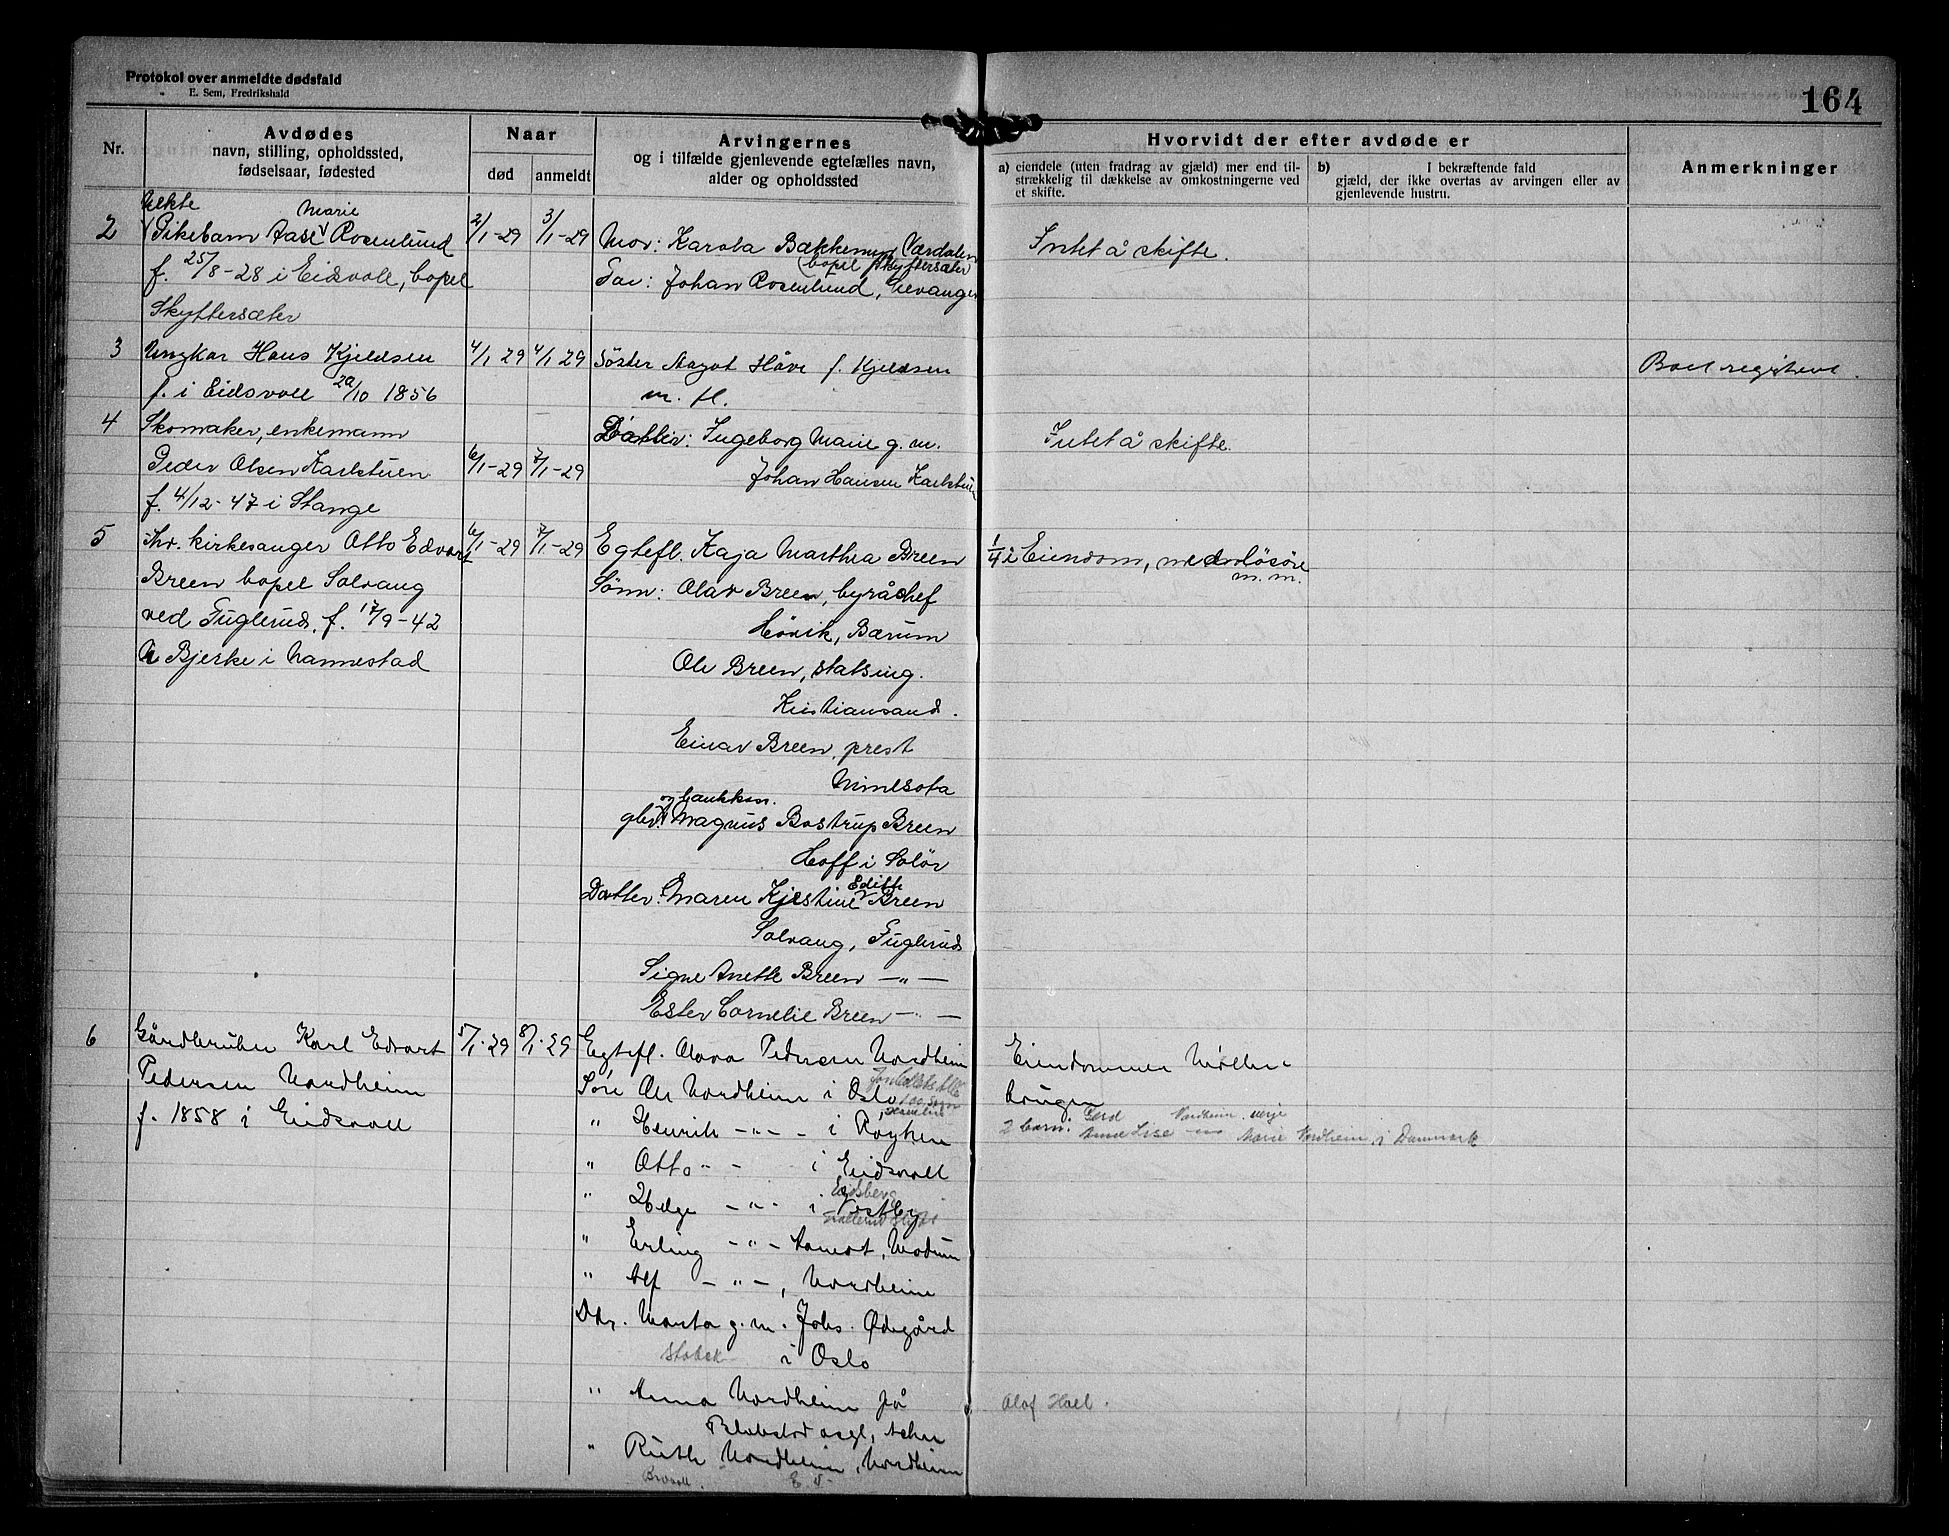 Protokol over anmeldte dødsfald
E. Sem, Fredrikshald
164
Nr.
Avdødes
navn, stilling, opholdssted,
fødselsaar, fødested
Naar
død
anmeldt
Arvingernes
og i tilfælde gjenlevende egtefælles navn,
alder og opholdssted
Hvorvidt der efter avdøde er
a) eiendele (uten fradrag av gjæld) mer end til-
strækkelig til dækkelse av omkostningerne ved
et skifte.
b) I bekræftende fald
gjæld, der ikke overtas av arvingen eller av
gjenlevende hustru.
Anmerkninger
2
Uekte Marie
Pikebarn Aase Rosenlund
f. 25/8-28 i Eidsvoll, bopel
Skyttersæter
2/1-29
3/1-29
Mor: Karola Bækkemyr Værdalen
bopel Skyttersæter
Far: Johan Rosenlund, Levanger
Intet å skifte.
3
Ungkar Hans Kjeldsen
f. i Eidsvoll 29/10 1856
4/1 29
4/1 29
Søster Aagot Håve f. Kjeldsen
m. fl.
Boet registrert.
4
Skomaker, enkemann
Peder Olsen Karlstuen
f. 4/12-47 i Stange
6/1-29
7/1-29
Datter: Ingeborg Marie g. m.
Johan Hansen Karlstuen
Intet å skifte.
5
Fhv. kirkesanger Otto Edvart
Breen bopel Solvang
ved Fuglerud, f. 17/9-42
Bjerke i Nannestad
6/1-29
7/1-29
Egtefl. Kaja Marthea Breen
Sønn: Olav Breen, byråchef
Høvik, Bærum
Ole Breen, statsing.
Kristiansand.
Einar Breen, prest
Minnesota
og bankkas.
gbr. Magnus Bostrup Breen
Hoff i Solør
Datter: Maren Kjestine Edith Breen
Solvang, Fuglerud
Signe Anette Breen — " —
Ester Cornelie Breen — " —
1/4 i Eiendom, med innløsøre
m. m.
6
Gårdbruker Karl Edvart
Pedersen Nordheim
f. 1858 i Eidsvoll
5/1-29
8/1-29
Egtefl. Olava Pedersen Nordheim
Søn Ole Nordheim i Oslo
" Henrik — " — i Røyken
" Otto " — i Eidsvoll
Eidsberg
" Helge — " — i Vestby
" Erling — " — Åmot, Modum
" Alf — " —, Nordheim
Dtr. Marta g. m. Johs. Ødegård
Stabek i Oslo
" Anna Nordheim på
Blakstad asyl, Asker
" Ruth Nordheim, Nordheim
E V
Eiendommen Møller-
krugen
2 barn: Gerd Nordheim verje
Anne Lise — " — Marie Nordheim i Danmark
Olaf Hoel.